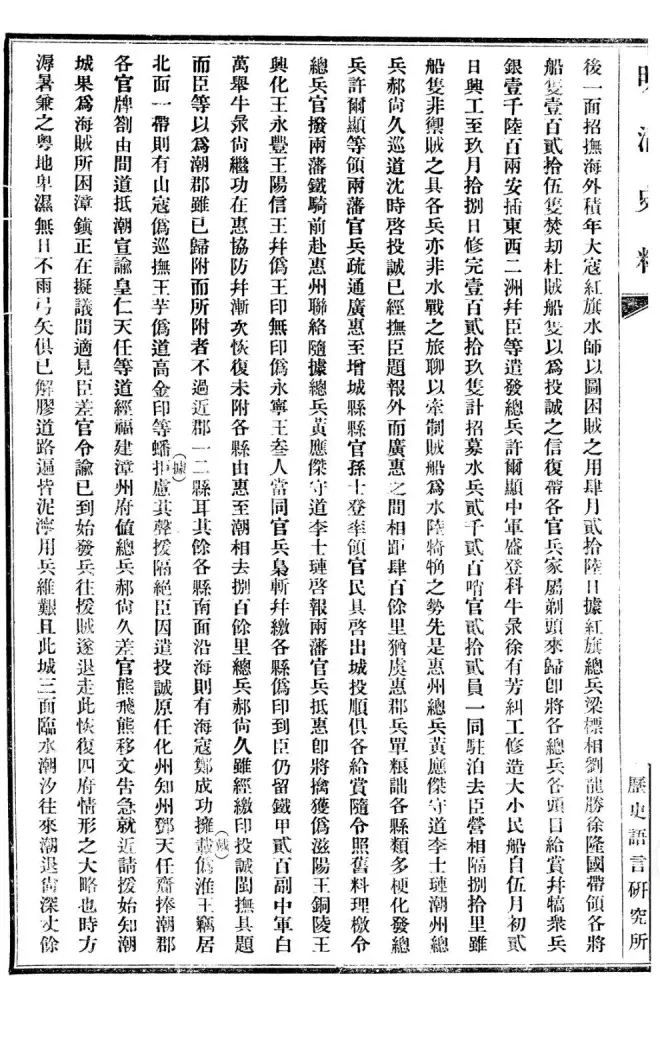 明清史料
歷史語言研究所
後一面招撫海外積年大寇紅旗水師以圖困賊之用肆月貳拾陸日據紅旗總兵梁標相劉龍勝徐隆國帶領各將
船隻壹百貳拾伍隻焚刧杜賊船隻以為投誠之信復帶各官兵家屬剃頭來歸卽將各總兵各頭目給賞幷犒衆兵
銀壹千陸百兩安插東西二洲幷臣等遣發總兵許爾顯中軍盛登科牛彔徐有芳糾工修造大小民船自伍月初貳
日興工至玖月拾捌日修完壹百貳拾玖隻計招募水兵貳千貳百哨官貳拾貳員一同駐泊去臣營相隔捌拾里雖
船隻非禦賊之具各兵亦非水戰之旅聊以牽制賊船為水陸犄角之勢先是惠州總兵黃應傑守道李士璉潮州總
兵郝尙久巡道沈時啓投誠已經撫臣題報外而廣惠之間相距肆百餘里猶虞惠郡兵單糧詘各縣類多梗化發總
兵許爾顯等領兩藩官兵疏通廣惠至增城縣縣官孫士登率領官民具啓出城投順俱各給賞隨令照舊料理檄令
總兵官撥兩藩鐵騎前赴惠州聯絡隨據總兵黃應傑守道李士璉啓報兩藩官兵抵惠卽將擒獲僞滋陽王銅陵王
興化王永豐王陽信王幷僞王印無印僞永寧王叁人當同官兵梟斬幷繳各縣僞印到臣仍留鐵甲貳百副中軍白
萬舉牛彔尙繼功在惠協防幷漸次恢復未附各縣由惠至潮相去捌百餘里總兵郝尙久雖經繳印投誠閩撫具題
而臣等以為潮郡雖已歸附而所附者不過近郡一二縣耳其餘各縣南面沿海則有海寇鄭成功擁(戴)僞淮王竊居
北面一帶則有山寇僞巡撫王芋僞道高金印等蟠拒(據)慮其聲援隔絕臣因遣投誠原任化州知州鄧天任齎捧潮郡
各官牌劄由間道抵潮宣諭皇仁天任等道經福建漳州府值總兵郝尙久差官熊飛熊移文告急就近請援始知潮
城果為海賊所困漳鎮正在擬議間適見臣差官令諭已到始發兵往援賊遂退走此恢復四府情形之大略也時方
溽暑兼之粤地卑濕無日不雨弓矢俱已解膠道路遍皆泥濘用兵維艱且此城三面臨水潮汐往來潮退尙深丈餘